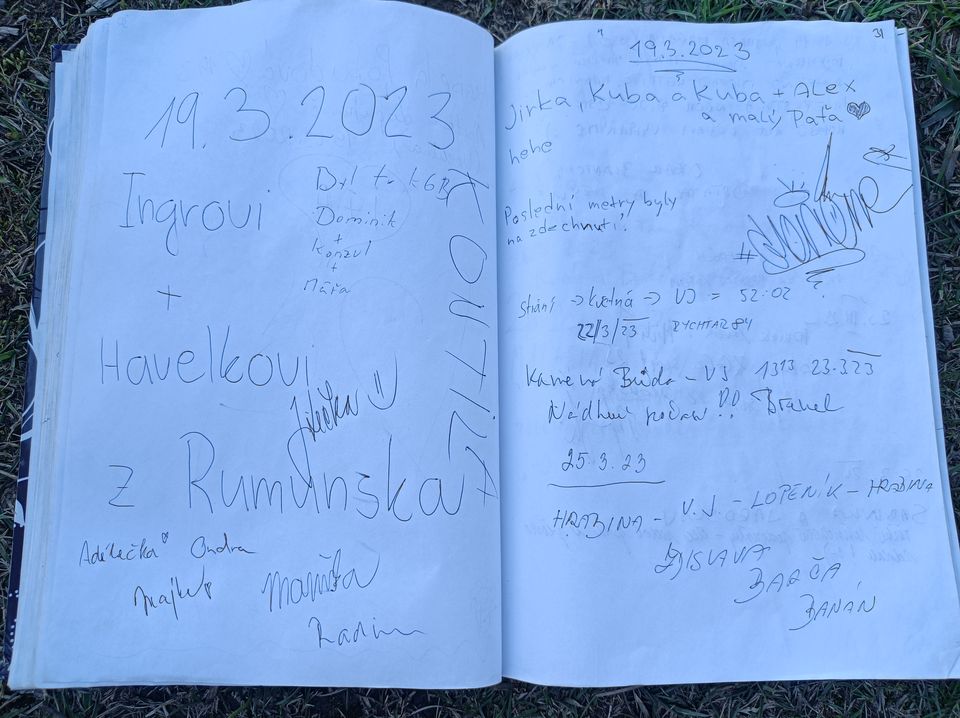 19.3.2023
Ingrovi
+
Havelkovi
z Rumunska
Byl tu
Dominik
+
Konzul
+
Máťa
Adélečka Ondra
Radim
31
19.3.2023
Jirka, Kuba a Kuba + Alex
a malý Paťa ♥
hehe
Poslední metry byly
na zdechnutí!
#
Strání → Květná → VJ = 52:02
22/3/23 RYCHTAR84
Kamenná Búda - VJ 13¹³ 23.3.23
Nádherné počasí !!
25.3.23
HRABINA - V.J. - LOPENÍK - HRABINA
ZDISLAVA
BARČA
BANÁN